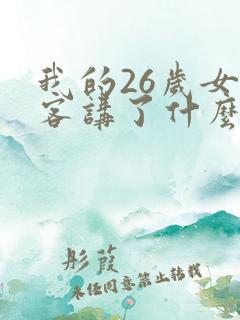 我的26歲女
客講了什麼
彤葭
未任同意禁止转载